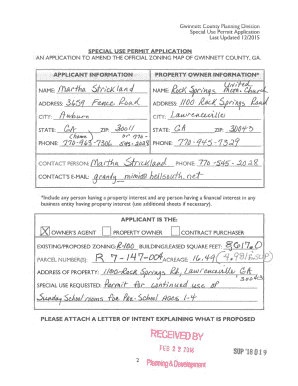 Gwinnett County Planning Division
Special Use Permit Application
Last Updated 12/2015
SPECIAL USE PERMIT APPLICATION
AN APPLICATION TO AMEND THE OFFICIAL ZONING MAP OF GWINNETT COUNTY, GA.
APPLICANT INFORMATION
NAME: Martha Strickland
ADDRESS: 3659 Fence Road
CITY: Auburn
STATE: GA ZIP: 30011
(home) or 770-
PHONE: 770-963-7306 545-2028
PROPERTY OWNER INFORMATION*
NAME: Rock Springs United Church
ADDRESS: 1100 Rock Springs Road
CITY: Lawrenceville
STATE: GA ZIP: 30043
PHONE: 770-945-7329
CONTACT PERSON: Martha Strickland PHONE: 770-545-2028
CONTACT'S E-MAIL: bellsouth.net
*Include any person having a property interest and any person having a financial interest in any
business entity having property interest (use additional sheets if necessary).
APPLICANT IS THE:
X OWNERS AGENT PROPERTY OWNER CONTRACT PURCHASER
EXISTING/PROPOSED ZONING: R-100 BUILDING/LEASED SQUARE FEET:
PARCEL NUMBER(S): R 7-147-004 ACREAGE 16.49
ADDRESS OF PROPERTY: 1100 Rock Springs Rd, Lawrenceville, GA
30043
SPECIAL USE REQUESTED: Permit for continued use of
Sunday School rooms for Pre-School AGES 1-4
PLEASE ATTACH A LETTER OF INTENT EXPLAINING WHAT IS PROPOSED
RECEIVED BY
FEB 2018
2
Planning & Development
SUP '18 019